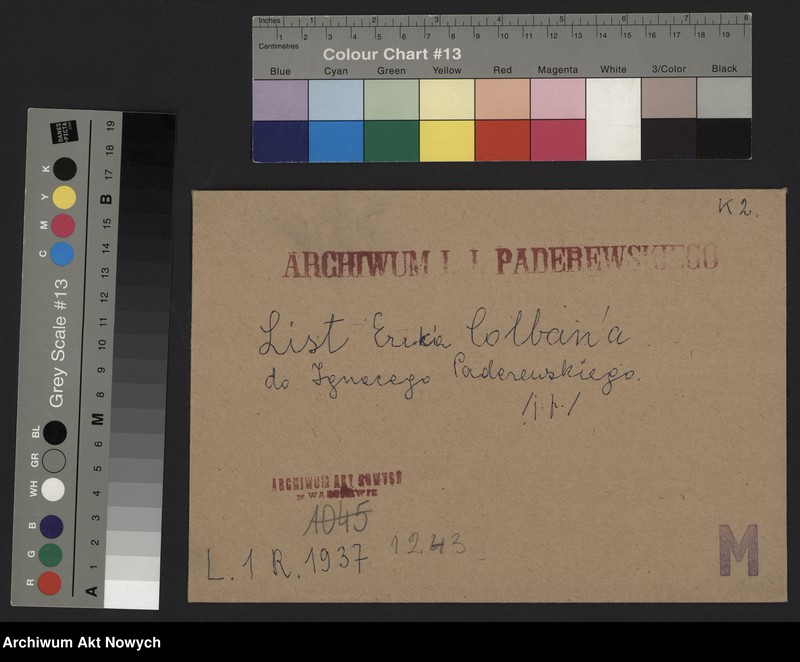 Inches 1 2 3 4 5 6 7 8
Centimetres 1 2 3 4 5 6 7 8 9 10 11 12 13 14 15 16 17 18 19
Colour Chart #13
Blue Cyan Green Yellow Red Magenta White 3/Color Black
Grey Scale #13
R G B WH GR BL C M Y K
A 1 2 3 4 5 6 M 8 9 10 11 12 13 14 15 B 17 18 19
K 2.
ARCHIWUM I. J. PADEREWSKIEGO
List Erika Colban'a
do Ignacego Paderewskiego.
/j.p./
ARCHIWUM AKT NOWYCH
W WARSZAWIE
1045
L. 1 R. 1937 1243
M
Archiwum Akt Nowych